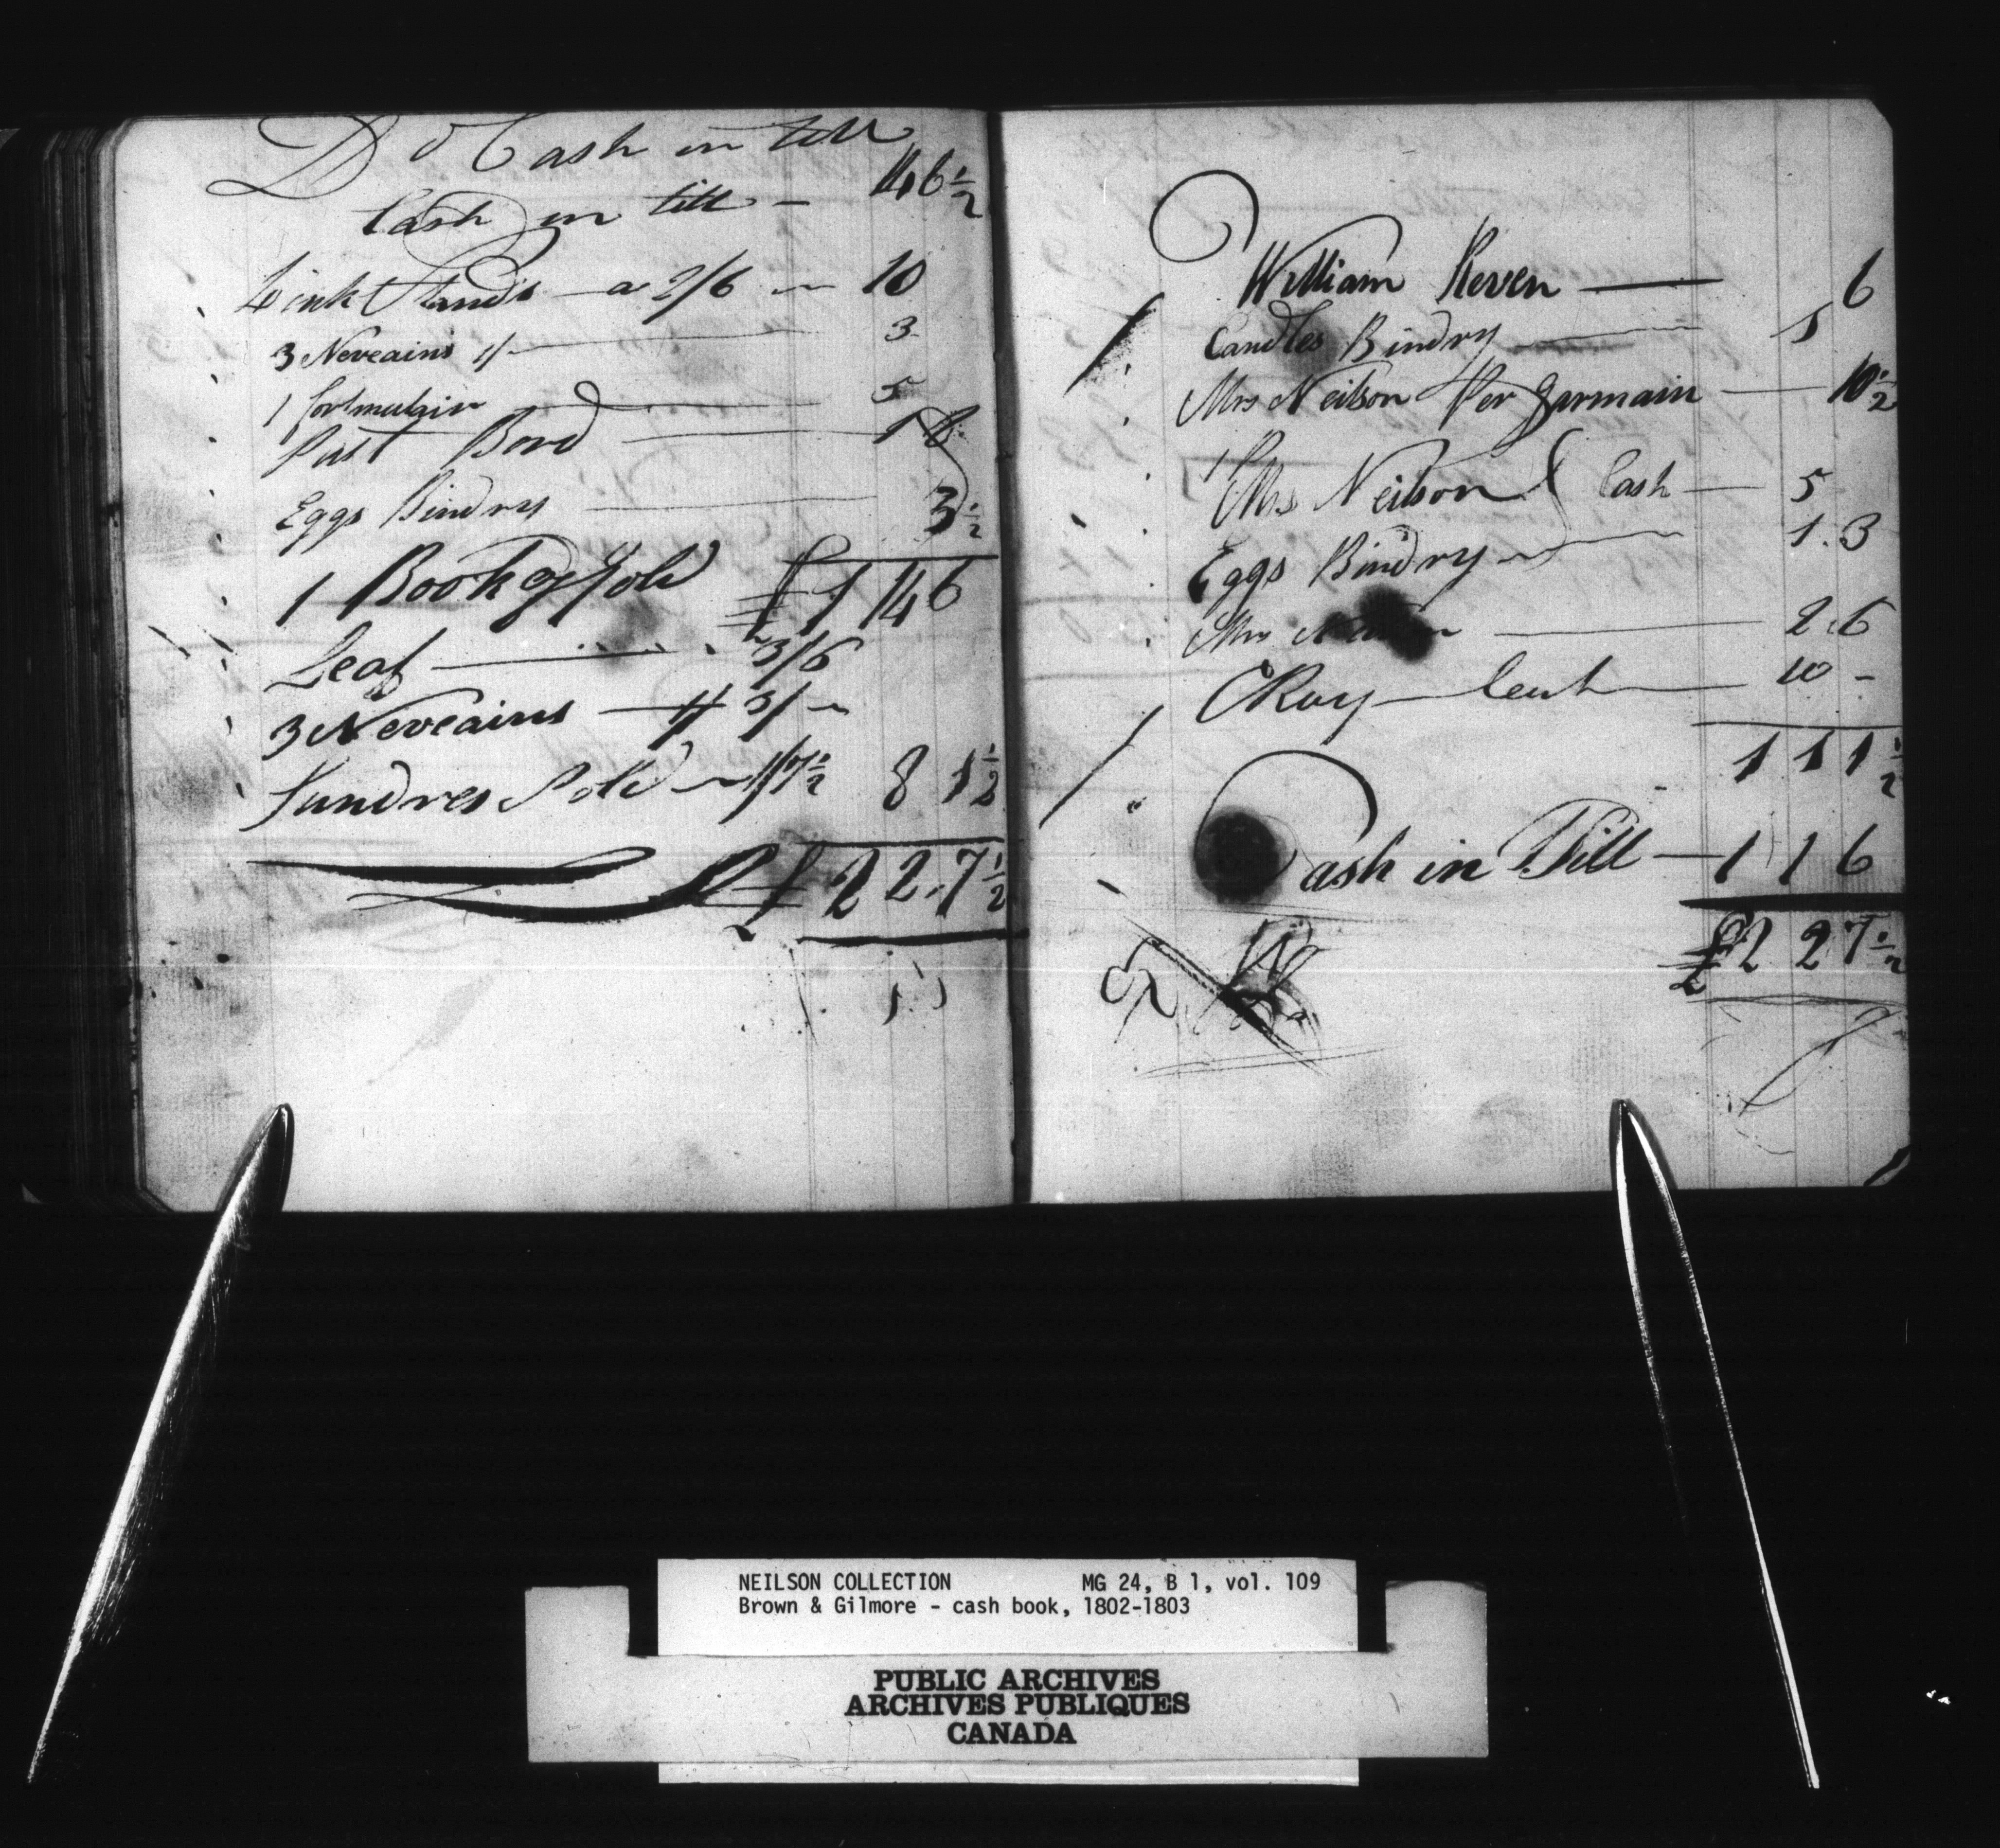 Do Cash in till
Cash in till – 14 6 1/2
4 ink Stands – a 2/6 – 10
3 Neveains 1/ – 3
1 – 5
Past Bord – 1 8
Eggs Bindry – 3 1/2
£1 14 6
1 Book of Gold
Leaf – 3/6
3 Neveains – 1/ 3/ –
Sundres Sold – 1/7 1/2 8 1 1/2
£2 2 7 1/2
William Keven – 6
Candles Bindry – 5
Mrs Neilson Per Garmain – 10 1/2
Mrs Neilson Cash – 5
Eggs Bindry – 1.3
Mrs – 2.6
C Roy – lent – 10 –
1 1 1 1/2
Cash in Till – 1 1 6
£2 2 7 1/2
NEILSON COLLECTION MG 24, B 1, vol. 109
Brown & Gilmore - cash book, 1802-1803
PUBLIC ARCHIVES
ARCHIVES PUBLIQUES
CANADA